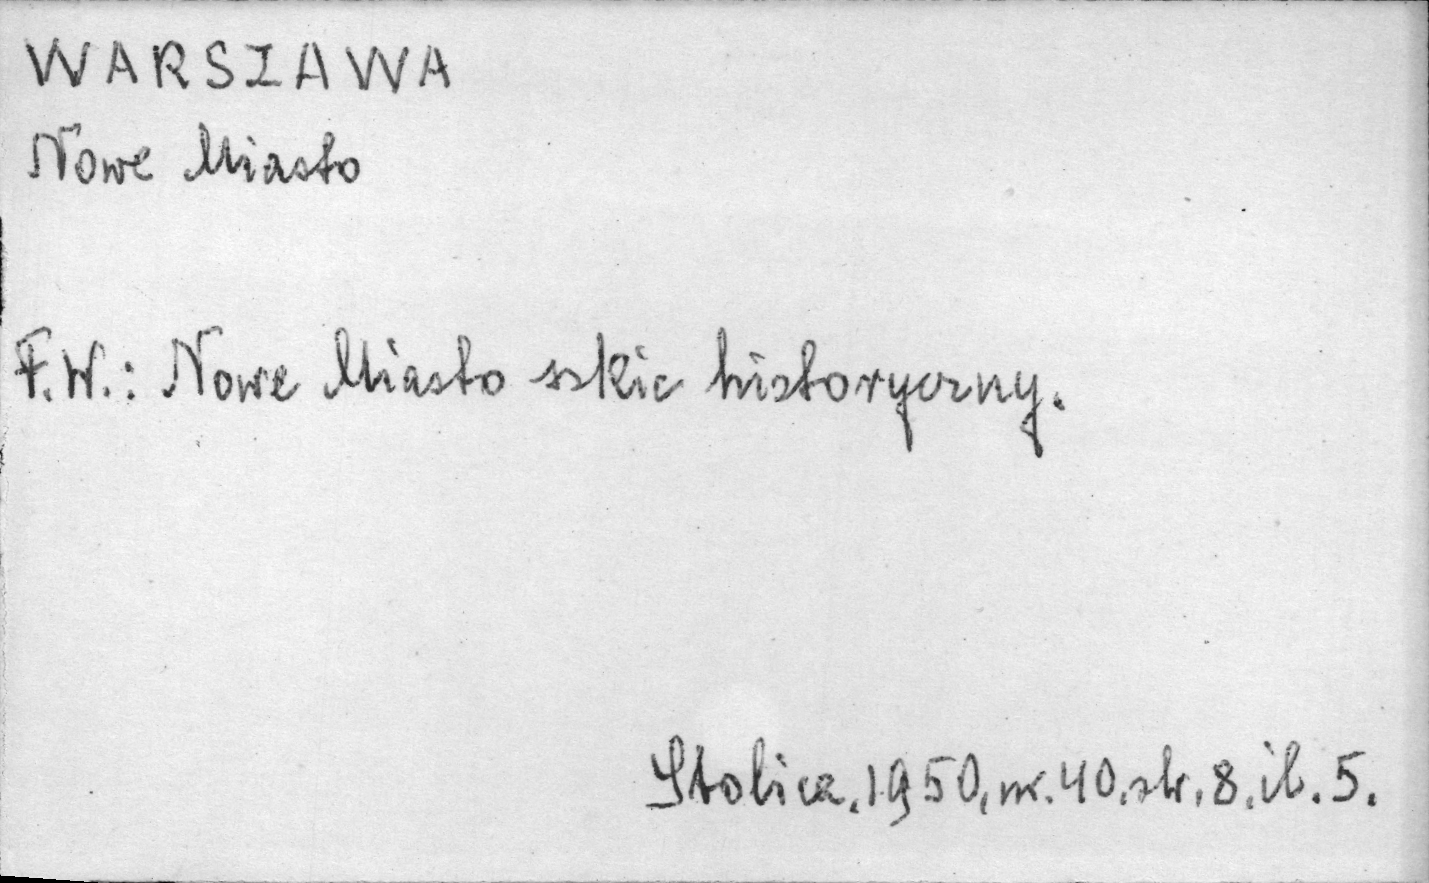 WARSZAWA
Nowe Miasto
F.W.: Nowe Miasto szkic historyczny.
Stolica, 1950, nr. 40, str. 8, il. 5.